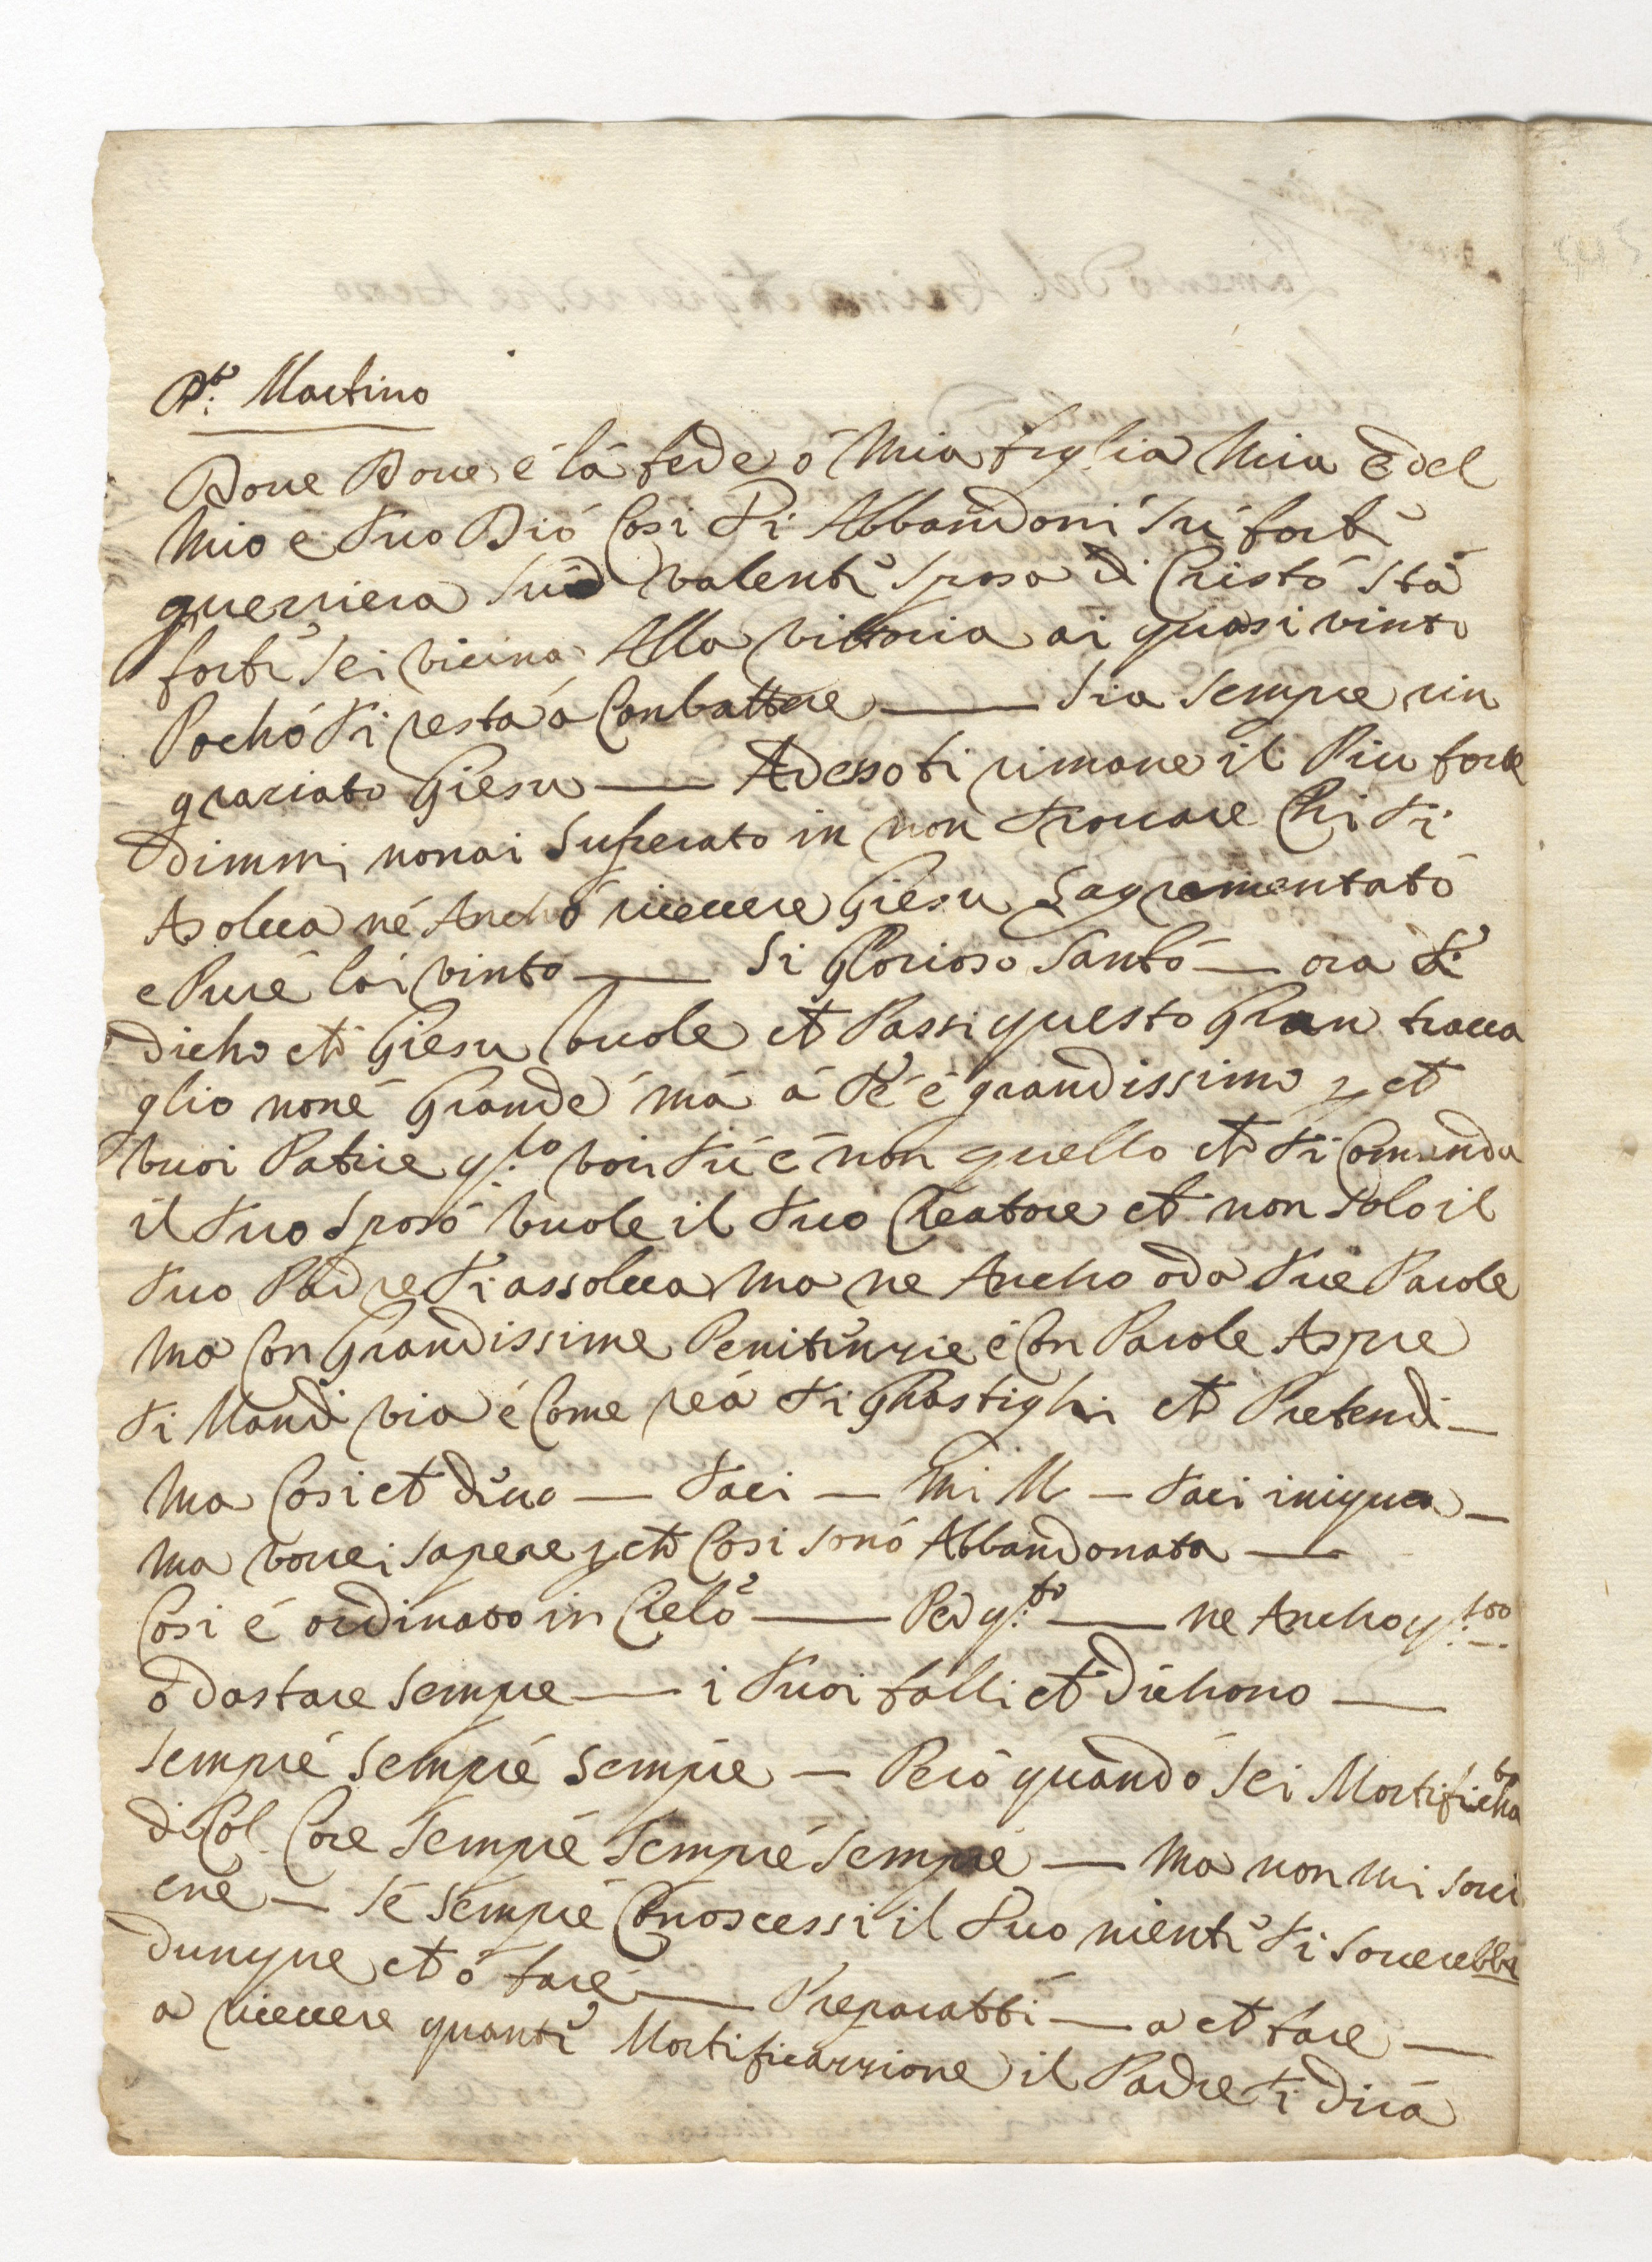 Dt. Martino
Doue Doue é lá fede ó Mia figlia Mia é del
Mio e tuo Dió Cosi ti Abbandoni sú forte
guerriera sú valente sposa di Cristó stá
forte sei vicina Alla vittoria ai quasi vinto
Pochó ti resta á Conbattere — sia sempre rin
graziato Giesu — Adesso ti rimane il Piu forte
dimmi nonai Superato in non trouare Chi ti
Asolua né Anchó riceuere Giesu Sagramentató
e Puré lai vinto — Si Glorioso Santó — ora ti
dicho ch Giesu vuole ch Passi questo Gran traua
glio noné Grandé má á té é grandissimo p ch
vuoi Patire q.to voi tú é non quello ch ti Comanda
il tuo Sposó vuole il tuo Creatore ch non solo il
tuo Padre ti assolua Ma ne Ancho oda tue Parole
Ma Con Grandissime Penitenzie é Con Parole Aspre
ti Mandi via é Come reá ti Ghastighi ch Pretendi —
Ma Cosi ch diuo — taci — Mi M — taci iniqua —
Ma vorrei sapere p ch Cosi sonó Abbandonata —
Cosi é ordinato in Cieló — Per q.to — ne Ancho q.too
ó da stare sempre — i tuoi falli ch dichono —
sempré sempré sempre — Peró quandó sei Mortificha
ta
di Col Core sempré sempré sempre — Ma non Mi soui
ene — sé sempré Conoscessi il tuo niente ti souerebbe
dunque ch ó fare — Preparatti — a ch fare —
a riceuere quante Mortificazzione il Padre ti dirá